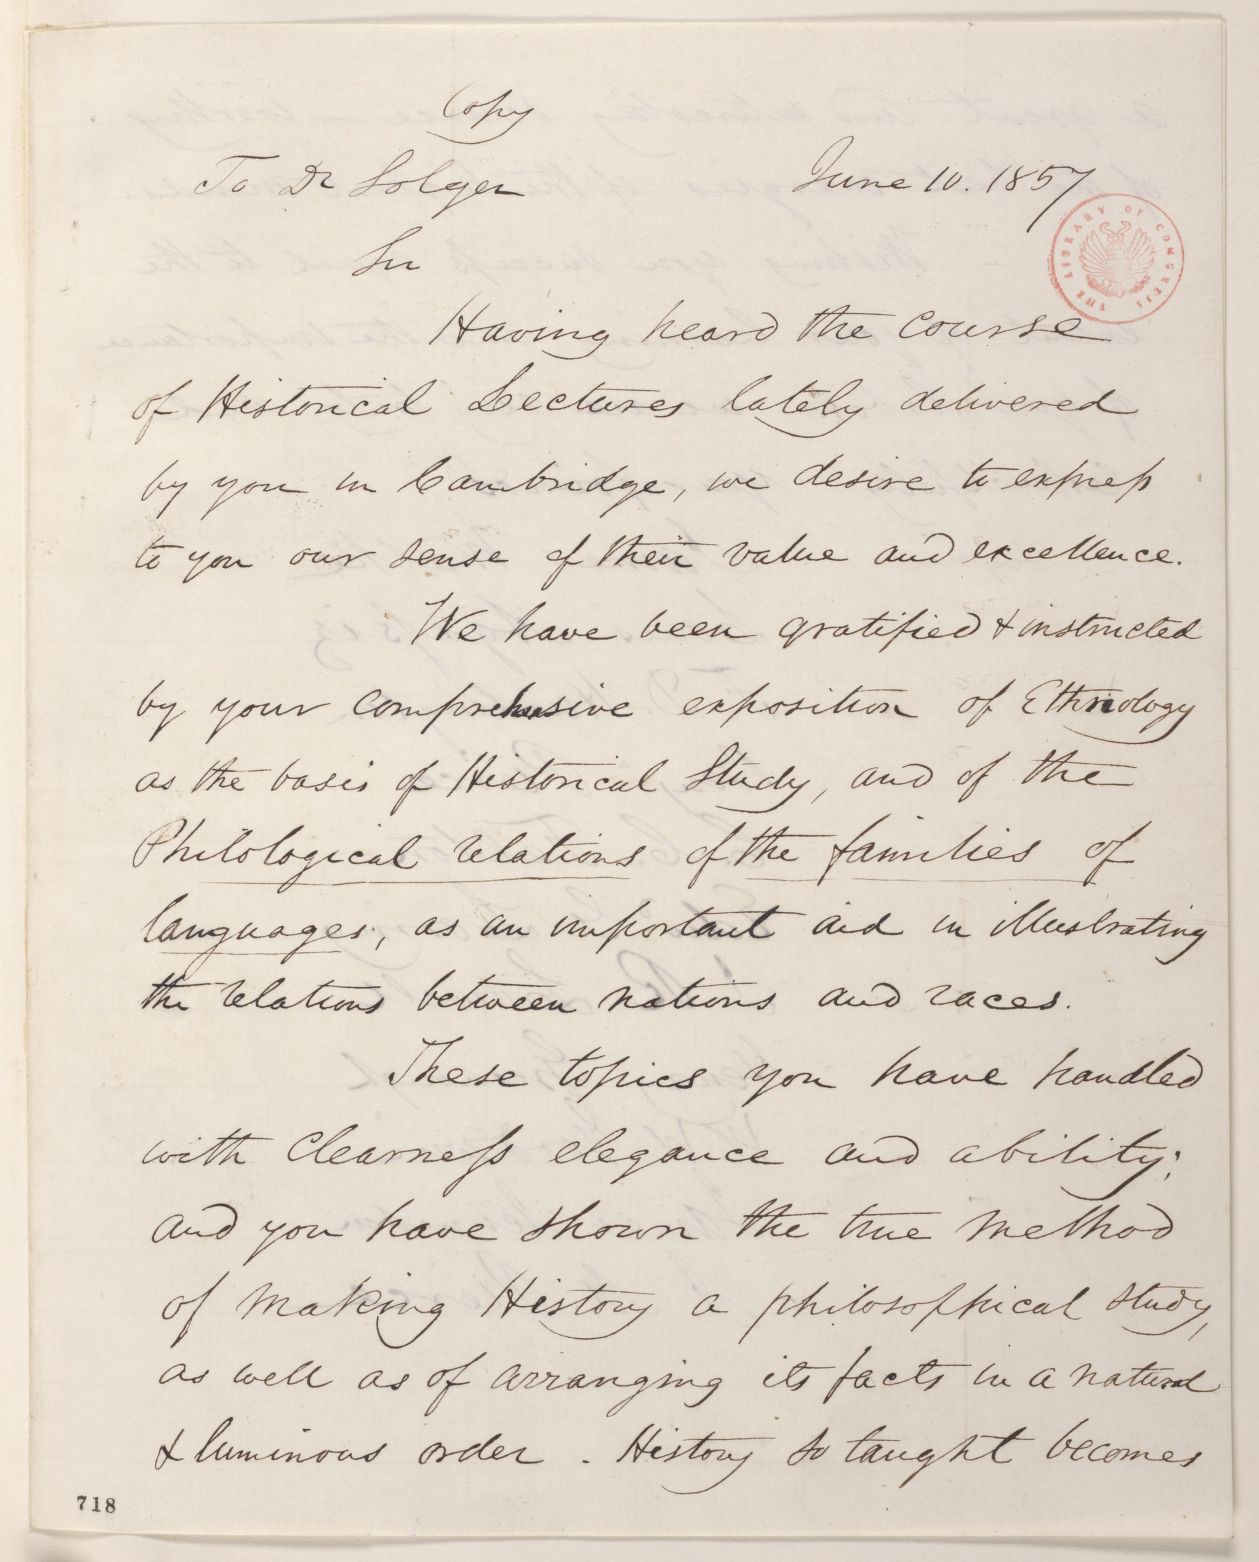 Copy
To Dr Solger June 10. 1857
Sir
THE LIBRARY OF CONGRESS
Having heard the course
of Historical Lectures lately delivered
by you in Cambridge, we desire to express
to you our sense of their value and excellence.
We have been gratified & instructed
by your comprehensive exposition of Ethnology
as the basis of Historical Study, and of the
Philological relations of the families of
languages, as an important aid in illustrating
the relations between nations and races.
These topics you have handled
with clearness elegance and ability;
and you have shown the true method
of making History a philosophical study,
as well as of arranging its facts in a natural
& luminous order. History so taught becomes
718